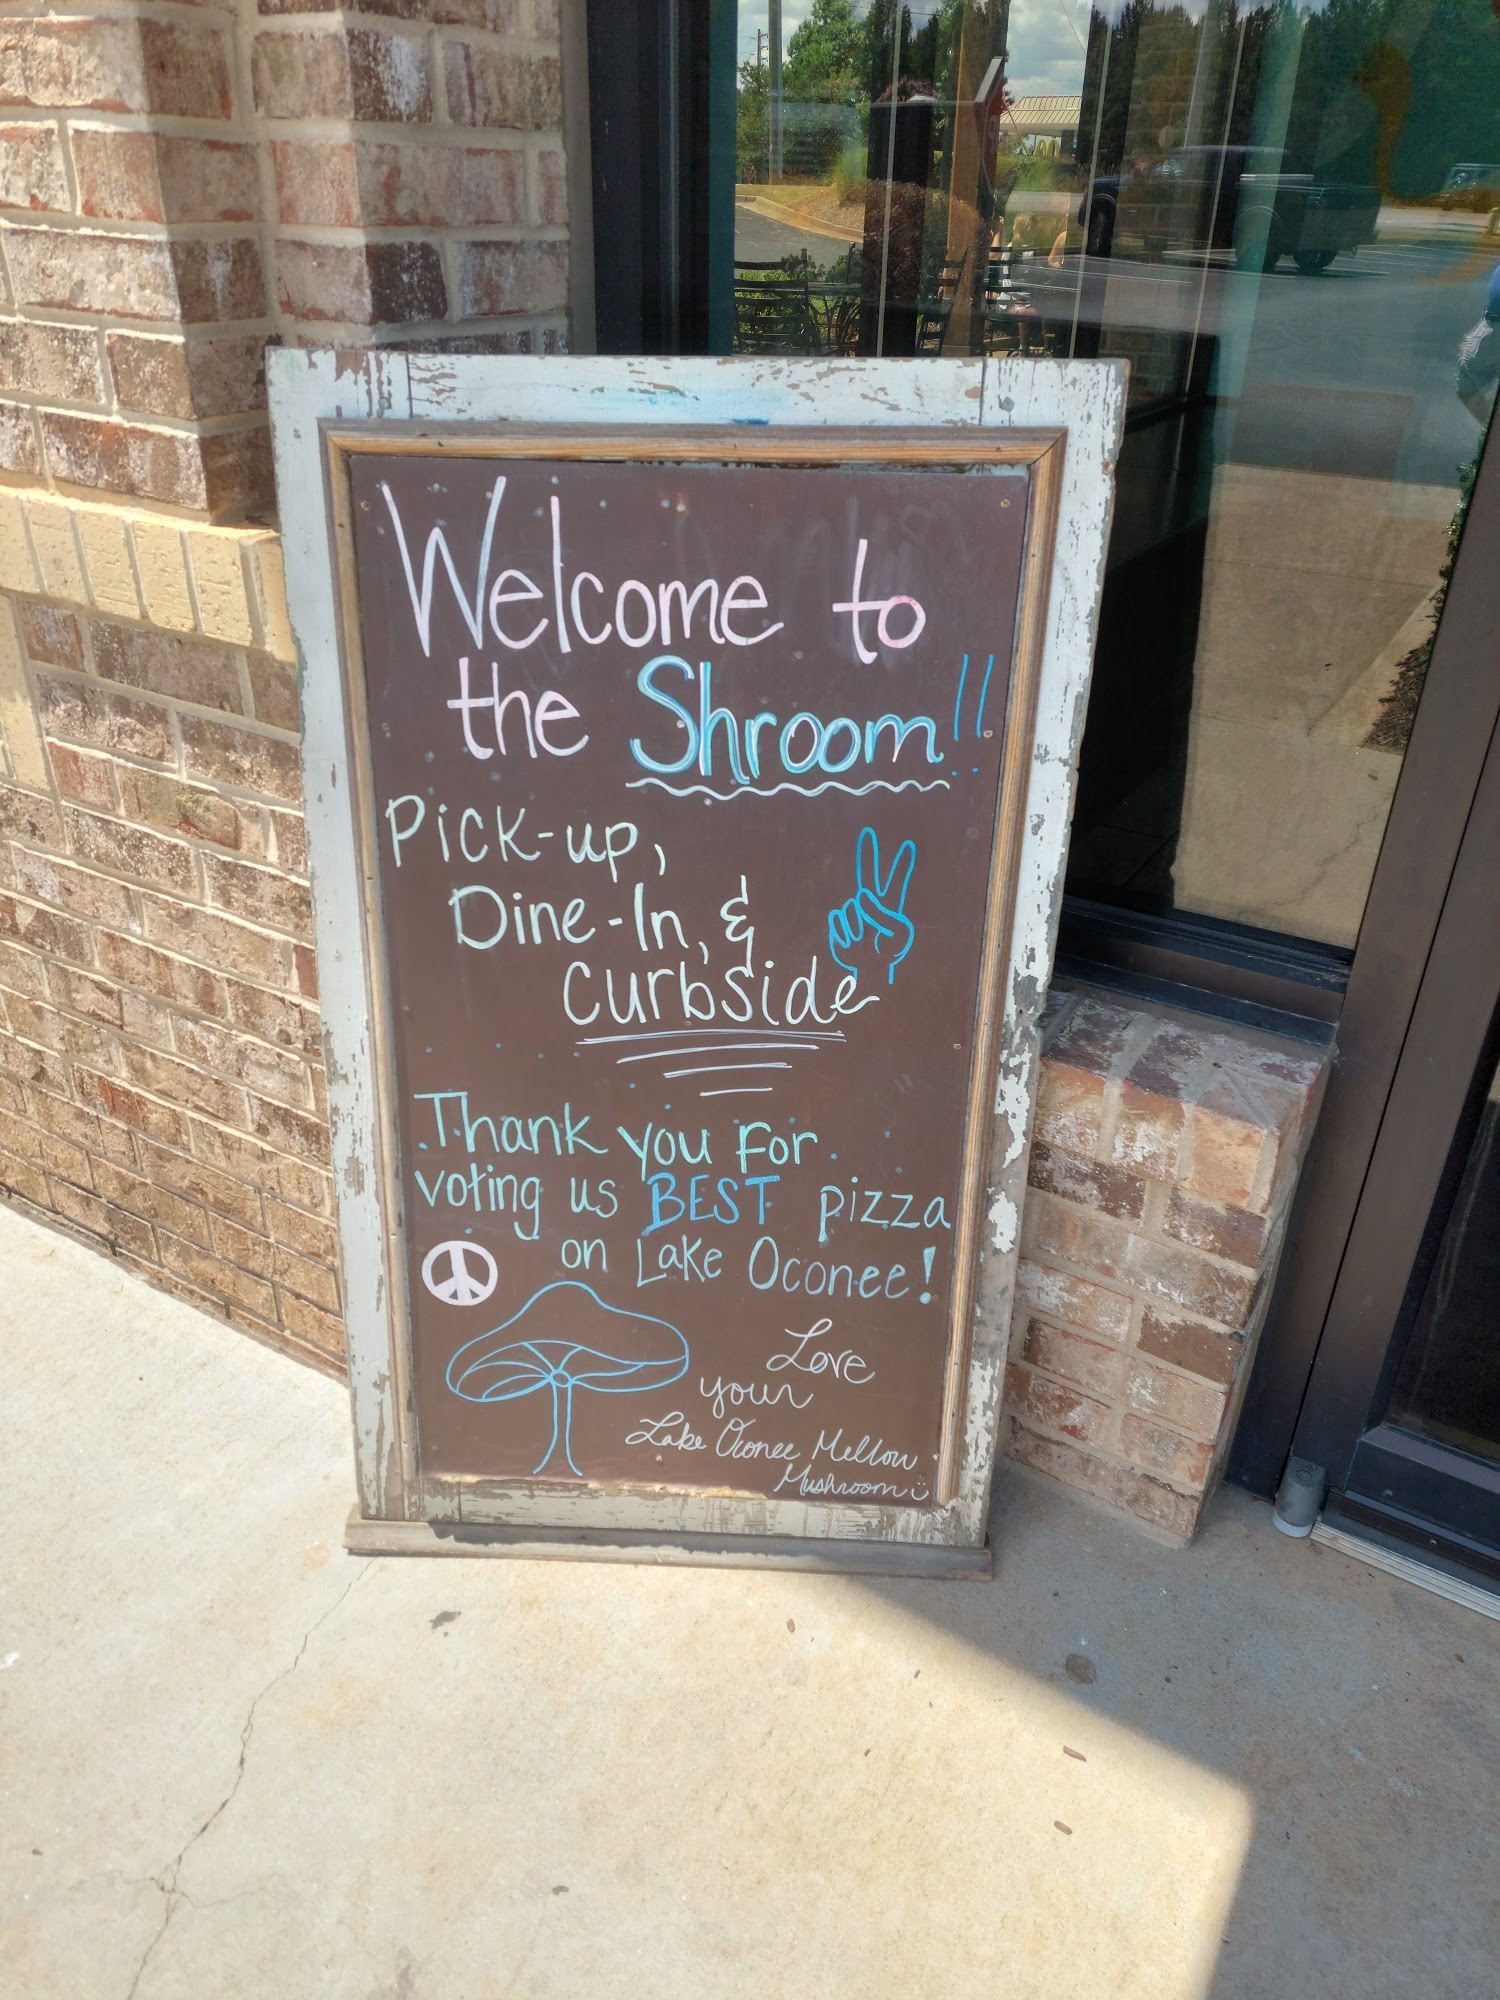 Welcome to
the Shroom!!
Pick-up,
Dine-In, &
Curbside
Thank you For
voting us BEST pizza
on Lake Oconee!
Love
your
Lake Oconee Mellow
Mushroom